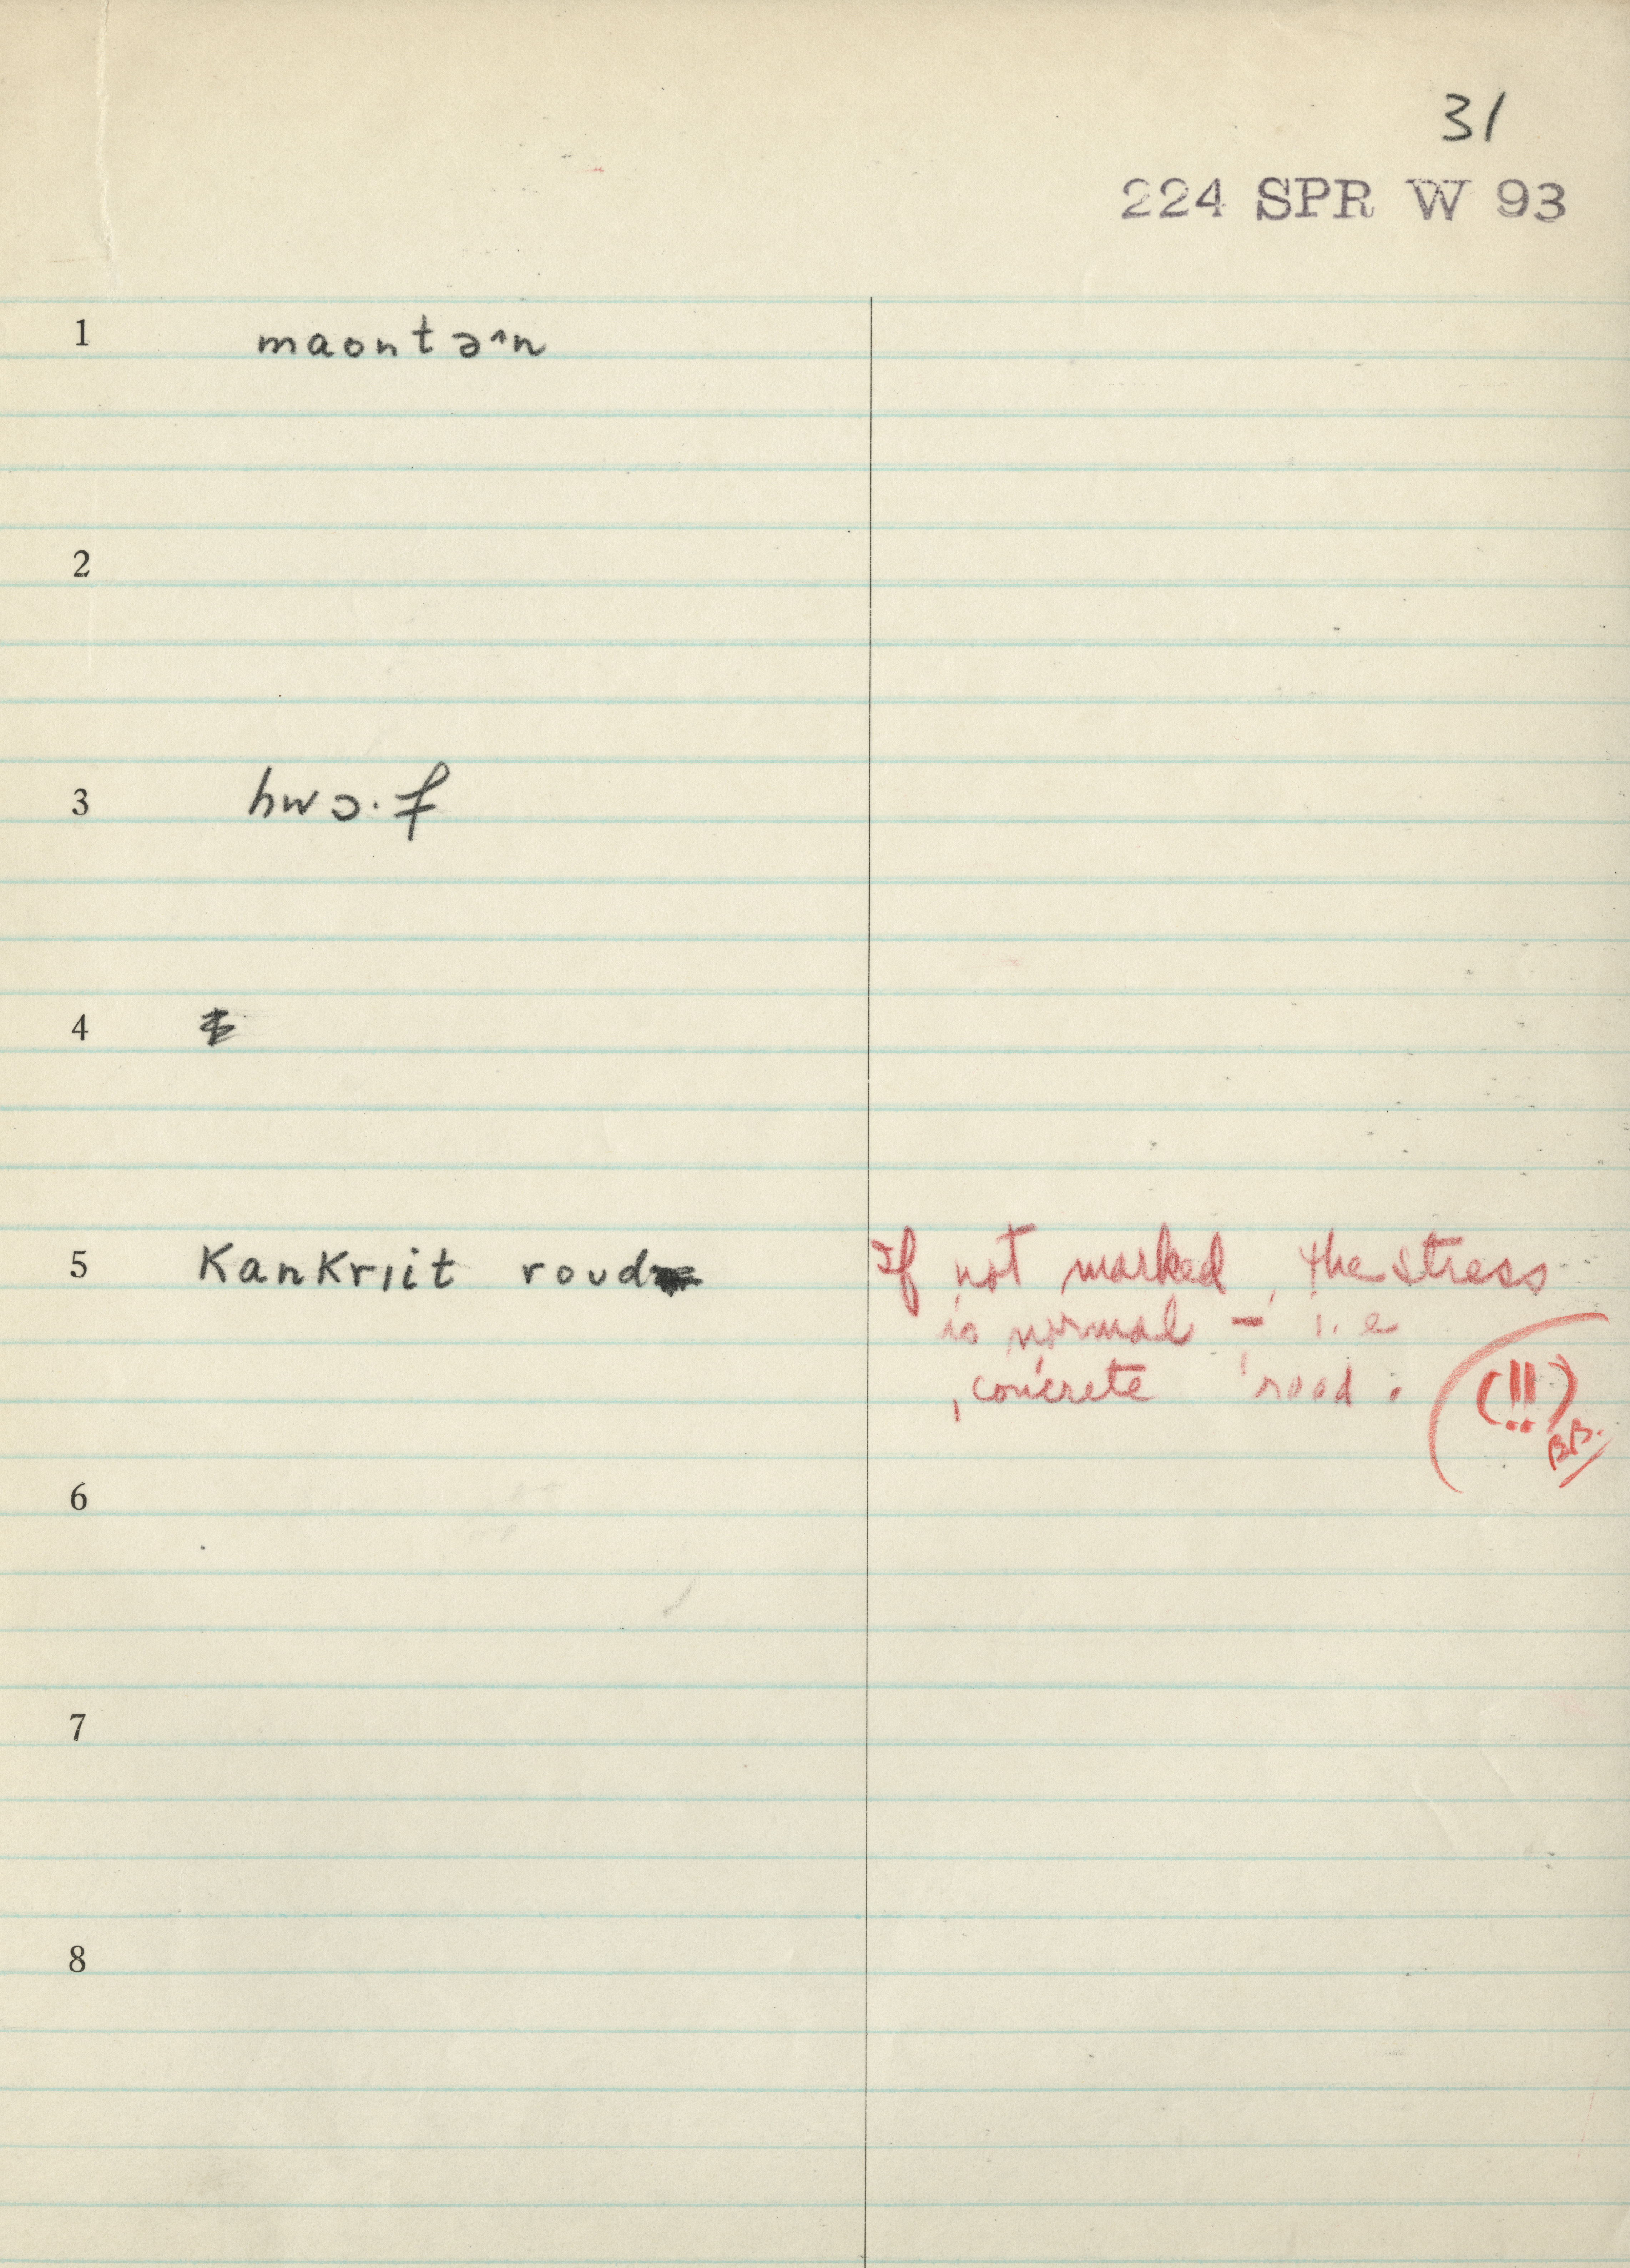 31
224 SPR W 93
1 maontə^n
2
3 hwɔ·f
4
5 Kankriit roud
If not marked, the stress
is normal – i.e
ˌconcrete ˈroad.
(!!)
BB.
6
7
8